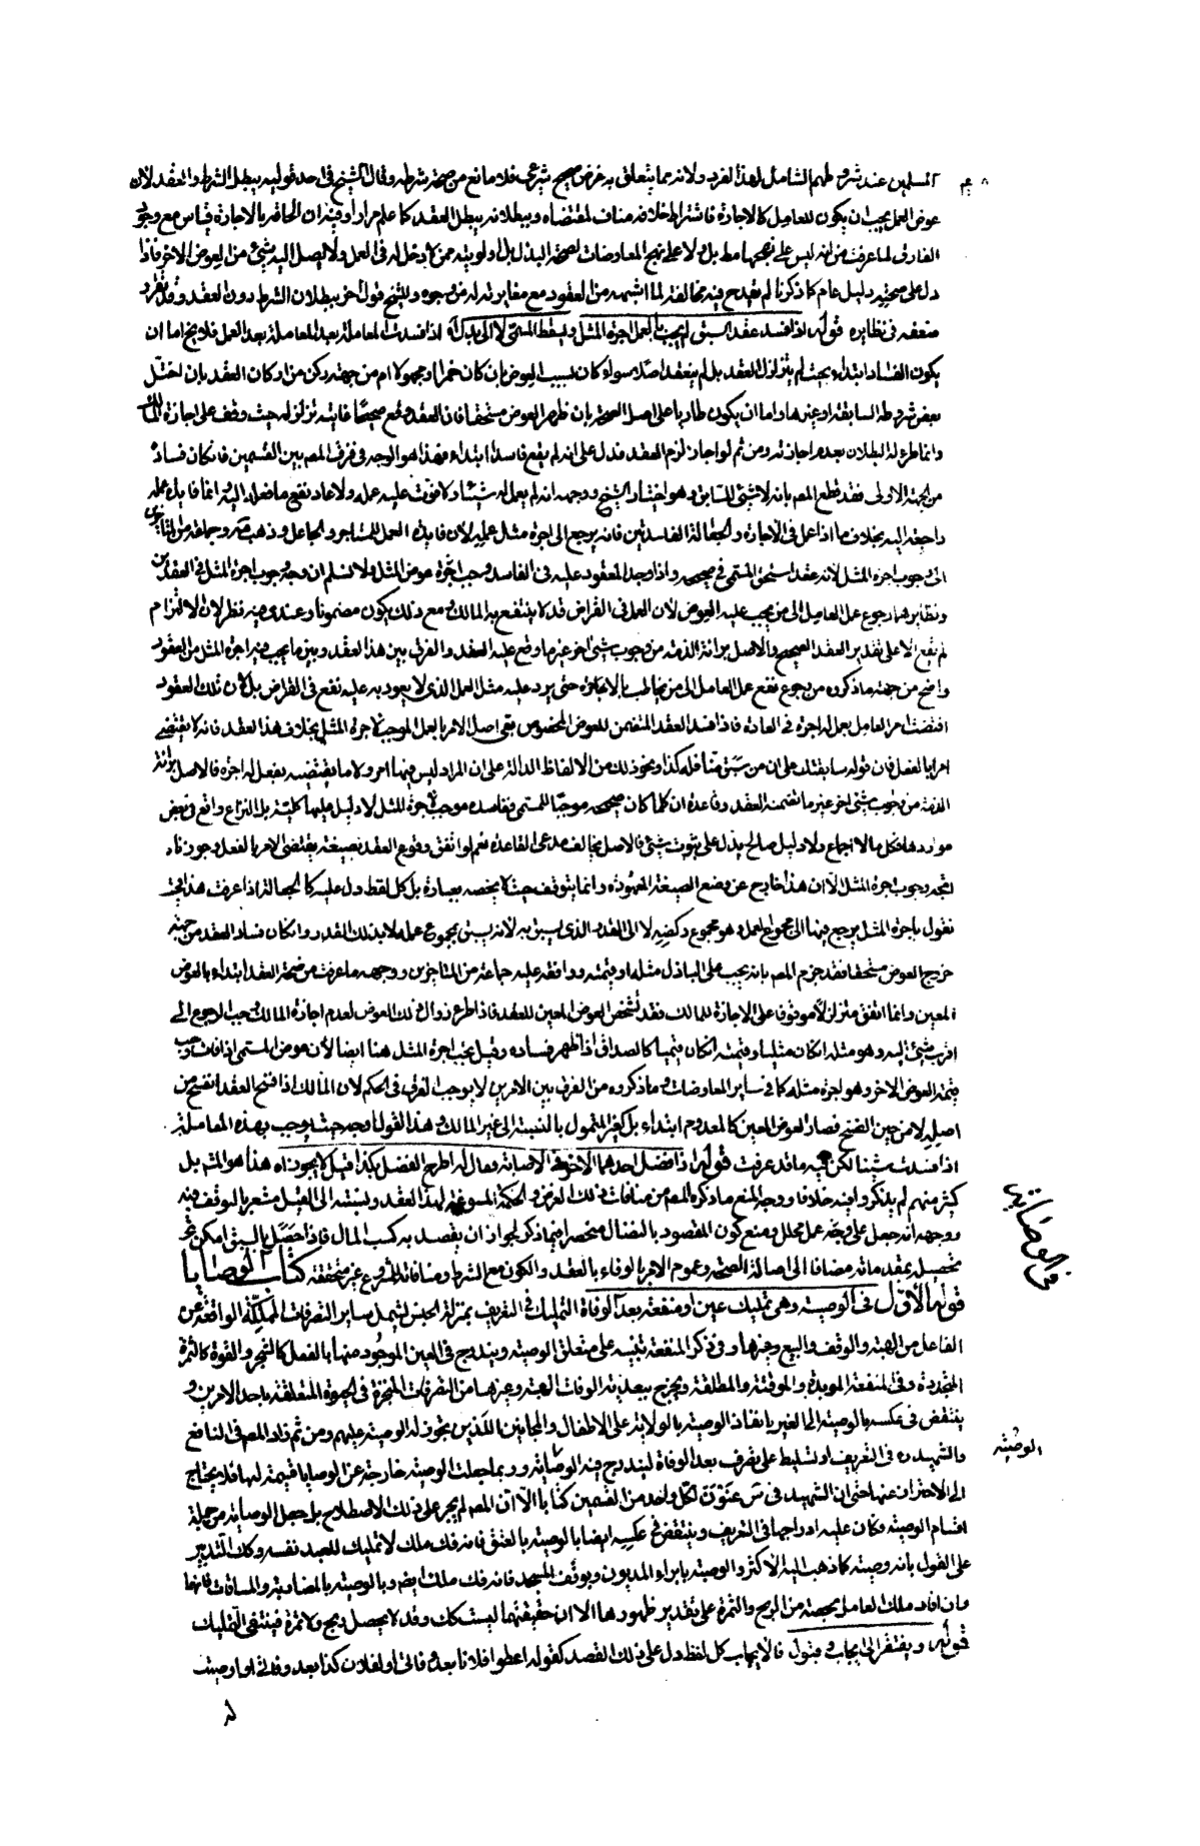 المسلمين عند شروطهم الشامل لهذا الفرد ولانه مما يتعلق به غرض صحيح شرعي فلا مانع من صحة شرطه وقال الشيخ في احد قوليه يبطل الشرط والعقد لان
عوض العمل يجب ان يكون للعامل كالاجارة فاشتراط خلافه مناف لمقتضاه وببطلانه يبطل العقد كما علم مرارا وفيه ان الحاقه بالاجارة قياس مع وجود
الفارق لما عرفت من انه ليس على نهجها مط بل ولا على نهج المعاوضات لصحة البذل بل اولويته ممن لا دخل له في العمل ولا يصل اليه شئ من العوض الاخر فاذا
دل على صحته دليل عام كما ذكرنا لم يقدح فيه مخالفته لما اشبهه من العقود مع مغايرته له من وجوه وللشيخ قول اخر ببطلان الشرط دون العقد وقد تقرر
ضعفه في نظايره قوله اذا فسد عقد السبق لم يجب بالعمل اجرة المثل ويسقط المسمى لا الى بدل اه اذا فسدت المعاملة بعد المعاملة بعد العمل فلا يخ اما ان
يكون الفساد ابتداء بحيث لم يتزلزل العقد بل لم ينعقد اصلا سواء كان بسبب العوض بان كان خمرا او مجهولا ام من جهة ركن من اركان العقد بان اختل
بعض شروطه السابقة او غيرها واما ان يكون طاريا على اصل الصحة بان ظهر العوض مستحقا فان العقد وقع صحيحا غايته تزلزله حيث وقف على اجازة المالك
وانما طرء له البطلان بعدم اجازته ومن ثم لو اجاز لزم العقد فدل على انه لم يقع فاسدا ابتداء فهذا هو الوجه في فرق المص بين القسمين فان كان فساده
من الجهة الاولى فقد قطع المص بانه لا شئ للسابق وهو اختيار الشيخ ووجهه انه لم يعمل له شيئا ولا فوت عليه عمله ولا عاد نفع ما فعله اليه وانما فايدة عمله
راجعة اليه بخلاف ما اذا عمل في الاجارة والجعالة الفاسدتين فانه يرجع الى اجرة مثل عمله لان فايدة العمل للمستاجر والجاعل وذهب وجماعة من المتاخرين
الى وجوب اجرة المثل لانه عقد استحق المسمى في صحيحه واذا وجد المعقود عليه في الفاسد وجب اجرة عوض المثل ولا نسلم ان وجه وجوب اجرة المثل في العقدين
ونظايرهما رجوع عمل العامل الى من يجب عليه العوض لان العمل في القراض قد لا ينتفع به المالك ومع ذلك يكون مضمونا وعندي فيه نظر لان الالتزام
لم يقع الا على تقدير العقد الصحيح والاصل برائة الذمة من وجوب شئ اخر غير ما وقع عليه العقد والفرق بين هذا العقد وبين ما يجب فيه اجرة المثل من العقود
واضح من جهة ما ذكروه من رجوع نفع عمل العامل الى من يخاطب بالاجرة حتى يرد عليه مثل العمل الذي لا يعود به عليه نفع في القراض بل لان تلك العقود
اقتضت امر العامل بعمل له اجرة في العادة فاذا فسد العقد المتضمن للعوض المخصوص بقي اصل الامر بالعمل الموجب لاجرة المثل بخلاف هذا العقد فانه لا يقتضي
امرا بالفعل فان قوله سابقتك على ان من سبق منا فله كذا ونحو ذلك من الالفاظ الدالة على ان المراد ليس فيها امر ولا ما يقتضيه بفعل له اجرة فالاصل برائة
الذمة من وجوب شئ اخر غير ما تضمنه العقد وقاعدة ان كلما كان صحيحه موجبا للمسمى ففاسده موجب لاجرة المثل لا دليل عليها كلية بل النزاع واقع في بعض
مواردها فكل ما لا اجماع ولا دليل صالح يدل على ثبوت شئ فالاصل يخالف مدعى القاعدة نعم لو اتفق وقوع العقد بصيغة يقتضي الامر بالفعل وجوزناه
اتجه وجوب اجرة المثل الا ان هذا خارج عن وضع الصيغة المعهودة وانما يتوقف حيث لا يخصه بعبارة بل كل لفظ دل عليه كالجعالة اذا عرفت هذا فحيث
نقول باجرة المثل يرجع فيها الى مجموع العمل وهو مجموع ركضه لا الى القدر الذي يسبق به لانه يسبق بمجموع عمله لا بذلك القدر وان كان فساد العقد من جهة
خروج العوض مستحقا فقد جزم المص بانه يجب على الباذل مثله او قيمته ووافقه عليه جماعة من المتاخرين ووجهه ما عرفت من صحة العقد ابتداء بالعوض
المعين وانما اتفق متزلزلا موقوفا على الاجازة للمالك فقد تشخص العوض المعين للعقد فاذا طرء زوال ذلك العوض لعدم اجازة المالك وجب الرجوع الى
اقرب شئ اليه وهو مثله ان كان مثليا وقيمته ان كان قيميا كالصداق اذا ظهر فساده وقيل يجب اجرة المثل هنا ايضا لان عوض المسمى اذا فات وجب
قيمة العوض الاخر وهو اجرة مثله كما في ساير المعاوضات وما ذكروه من الفرق بين الامرين لا يوجب الفرق في الحكم لان المالك اذا فسخ العقد انفسخ من
اصله لا من حين الفسخ فصار العوض المعين كالمعدوم ابتداء بل كغير المتمول بالنسبة الى غير المالك وهذا القول اوجه حيث يوجب بهذه المعاملة
اذا فسدت شيئا لكن فيه ما قد عرفت قوله اذا فضل احدهما الاخر في الاصابة وقال له اطرح الفضل بكذا قيل لا يجوز اه هذا هو المش بل
كثير منهم لم يذكروا فيه خلافا ووجه المنع ما ذكره المص من منافات ذلك الغرض والحكمة المسوغة لهذا العقد ونسبته الى القيل مشعر بالتوقف فيه
ووجهه انه جعل على وجه عمل محلل ومنع كون المقصود بالنضال منحصرا فيما ذكر لجواز ان يقصد به كسب المال فاذا حصل بالسبق امكن
تحصيله بمقدماته مضافا الى اصالة الصحة وعموم الامر بالوفاء بالعقد والكون مع الشرط ومنافاته للمشروع غير متحققة كتاب الوصايا
قوله الاول في الوصية وهي تمليك عين او منفعة بعد الوفاة التمليك في التعريف بمنزلة الجنس يشمل ساير التصرفات المملكة الواقعة من
الفاعل من الهبة والوقف والبيع وغيرها وفي ذكر المنفعة تنبيه على متعلق الوصية ويندرج في العين الموجود منها بالفعل كالشجر والقوة كالثمرة
المتجددة وفي المنفعة المؤبدة والموقتة والمطلقة ويخرج ببعدية الوفات الهبة وغيرها من التصرفات المنجزة في الحيوة المتعلقة باحد الامرين و
ينتقض في عكسه بالوصية الى الغير بانفاذ الوصية بالولاية على الاطفال والمجانين الذين يجوز له الوصية عليهم ومن ثم زاد المص في النافع
والشهيد ره في التعريف او تسليط على تصرف بعد الوفاة ليندرج فيه الوصاية وربما جعلت الوصية خارجة عن الوصايا قسيمة لها فلا يحتاج
الى الاحتراز عنها حتى ان الشهيد في س عنون لكل واحد من القسمين كتابا الا ان المص لم يجر على ذلك الاصطلاح بل جعل الوصاية من جملة
اقسام الوصية فكان عليه ادراجها في التعريف وينتقض في عكسه ايضا بالوصية بالعتق فانه فك ملك لا تمليك للعبد نفسه وكك التدبير
على القول بانه وصية كما ذهب اليه الاكثر والوصية بابراء المديون وبوقف المسجد فانه فك ملك ايض وبالوصية بالمضاربة والمساقات فانها
وان افاد ملك العامل بحصة من الربح والثمرة على تقدير ظهورها الا ان حقيقتها ليست كك وقد لا يحصل ربح ولا ثمرة فينتفي التمليك
قوله ويفتقر الى ايجاب وقبول فالايجاب كل لفظ دل على ذلك القصد كقوله اعطوا فلانا بعد وفاتي او لفلان كذا بعد وفاتي او اوصيت
له
في الوصايا
الوصية